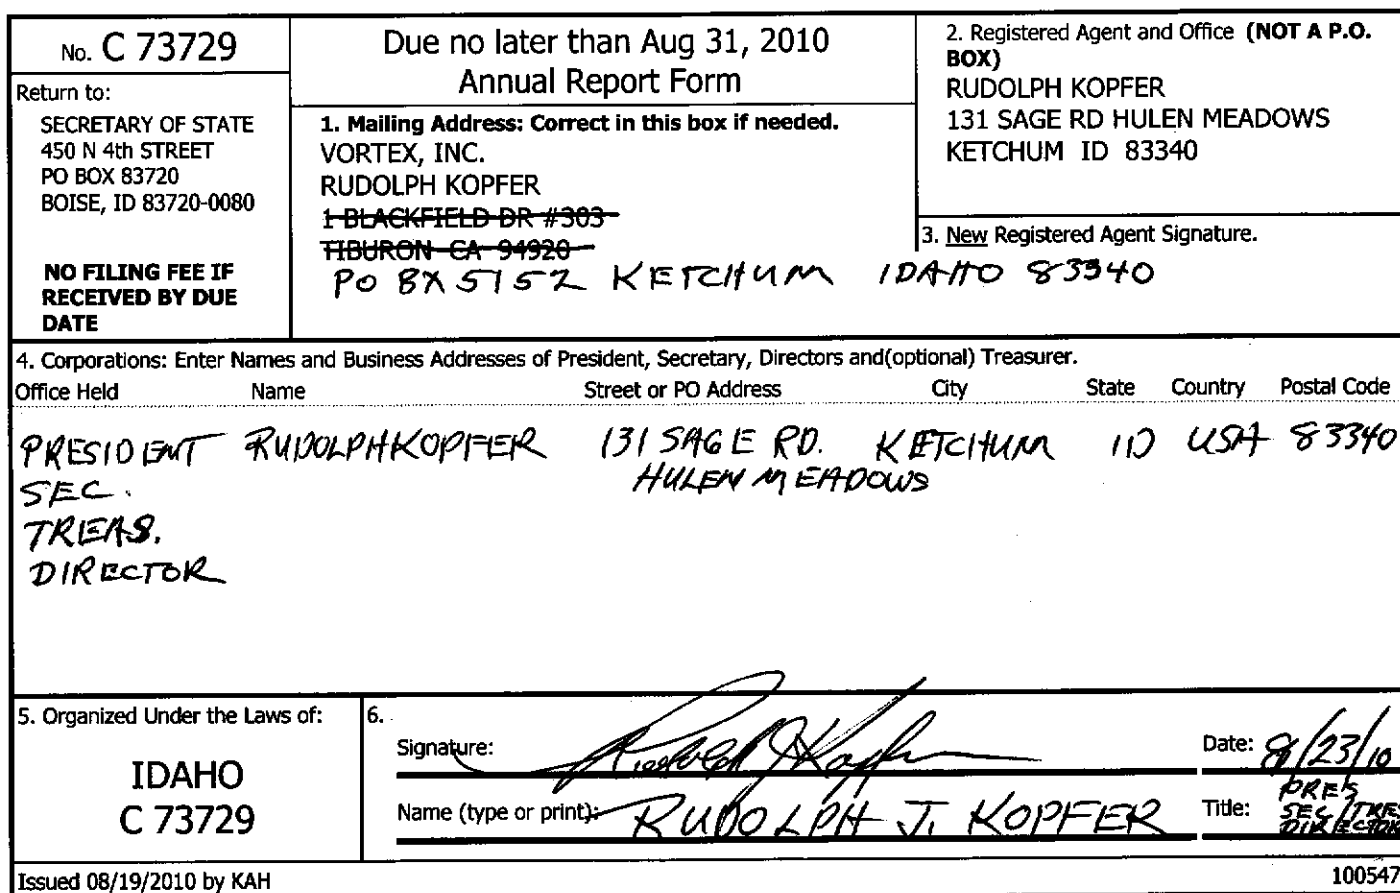 No. C 73729
Return to:
SECRETARY OF STATE
450 N 4th STREET
PO BOX 83720
BOISE, ID 83720-0080
NO FILING FEE IF
RECEIVED BY DUE
DATE
Due no later than Aug 31, 2010
Annual Report Form
1. Mailing Address: Correct in this box if needed.
VORTEX, INC.
RUDOLPH KOPFER
1 BLACKFIELD DR #303
TIBURON CA 94920
PO BX 5152 KETCHUM IDAHO 83340
2. Registered Agent and Office (NOT A P.O.
BOX)
RUDOLPH KOPFER
131 SAGE RD HULEN MEADOWS
KETCHUM ID 83340
3. New Registered Agent Signature.
4. Corporations: Enter Names and Business Addresses of President, Secretary, Directors and(optional) Treasurer.
Office Held Name Street or PO Address City State Country Postal Code
PRESIDENT RUDOLPH KOPFER 131 SAGE RD. KETCHUM ID USA 83340
SEC. HULEN MEADOWS
TREAS.
DIRECTOR
5. Organized Under the Laws of:
IDAHO
C 73729
6.
Signature: Rudolph J Kopfer Date: 8/23/10
Name (type or print): RUDOLPH J. KOPFER Title: PRES
SEC/TRES
DIRECTOR
Issued 08/19/2010 by KAH 100547